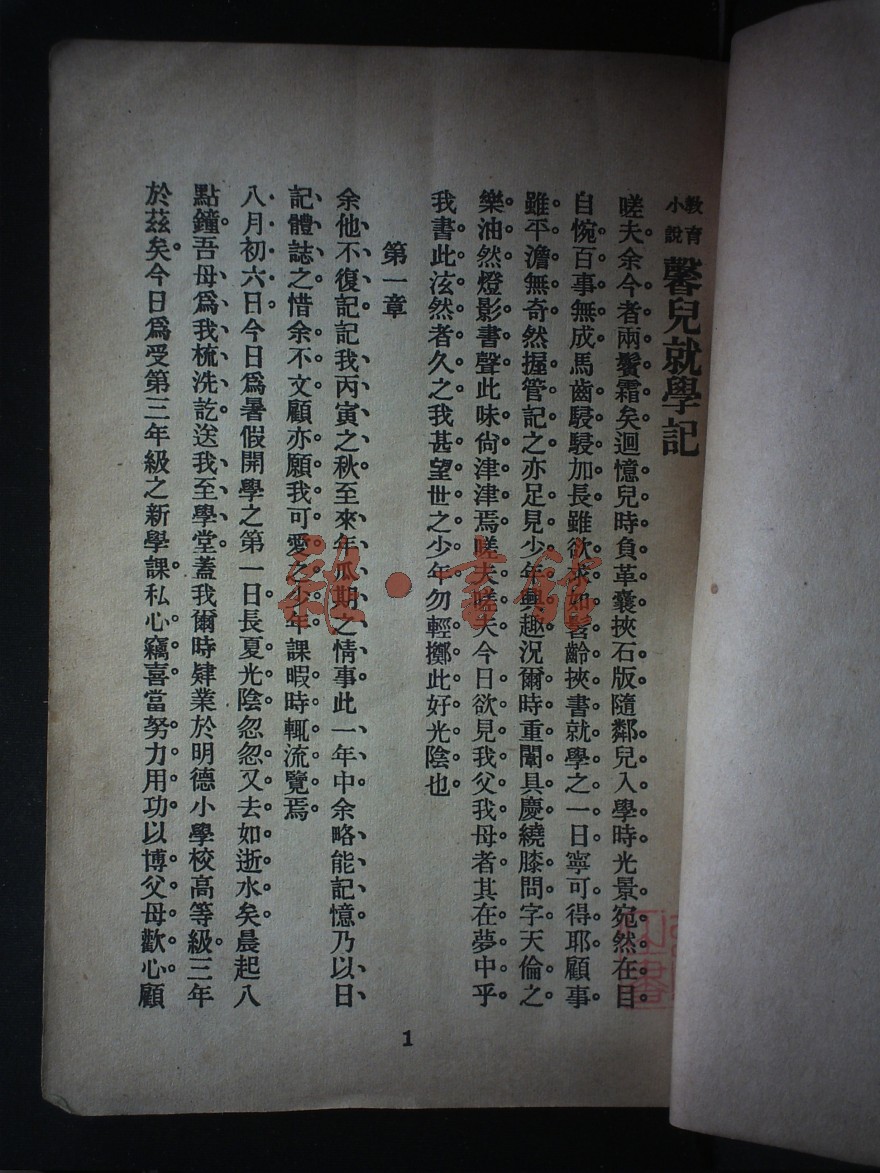 教育小説 馨兒就學記
嗟夫余今者兩鬢霜矣。迴憶兒時負革囊挾石版隨鄰兒入學時光景宛然在目。
自惋百事無成馬齒駸駸加長雖欲求如髫齡挾書就學之一日寧可得耶顧事
雖平澹無奇然握管記之亦足見少年興趣況爾時重闈具慶繞膝問字天倫之
樂油然燈影書聲此味尙津津焉嗟夫嗟夫今日欲見我父我母者其在夢中乎
我書此泫然者久之我甚望世之少年勿輕擲此好光陰也
第一章
余他不復記記我丙寅之秋至來年瓜期之情事此一年中余略能記憶乃以日
記體誌之惜余不文顧亦願我可愛之少年課暇時輒流覽焉
八月初六日今日爲暑假開學之第一日長夏光陰忽忽又去如逝水矣晨起八
點鐘吾母爲我梳洗訖送我至學堂蓋我爾時肄業於明德小學校高等級三年
於茲矣今日爲受第三年級之新學課私心竊喜當努力用功以博父母歡心顧
1